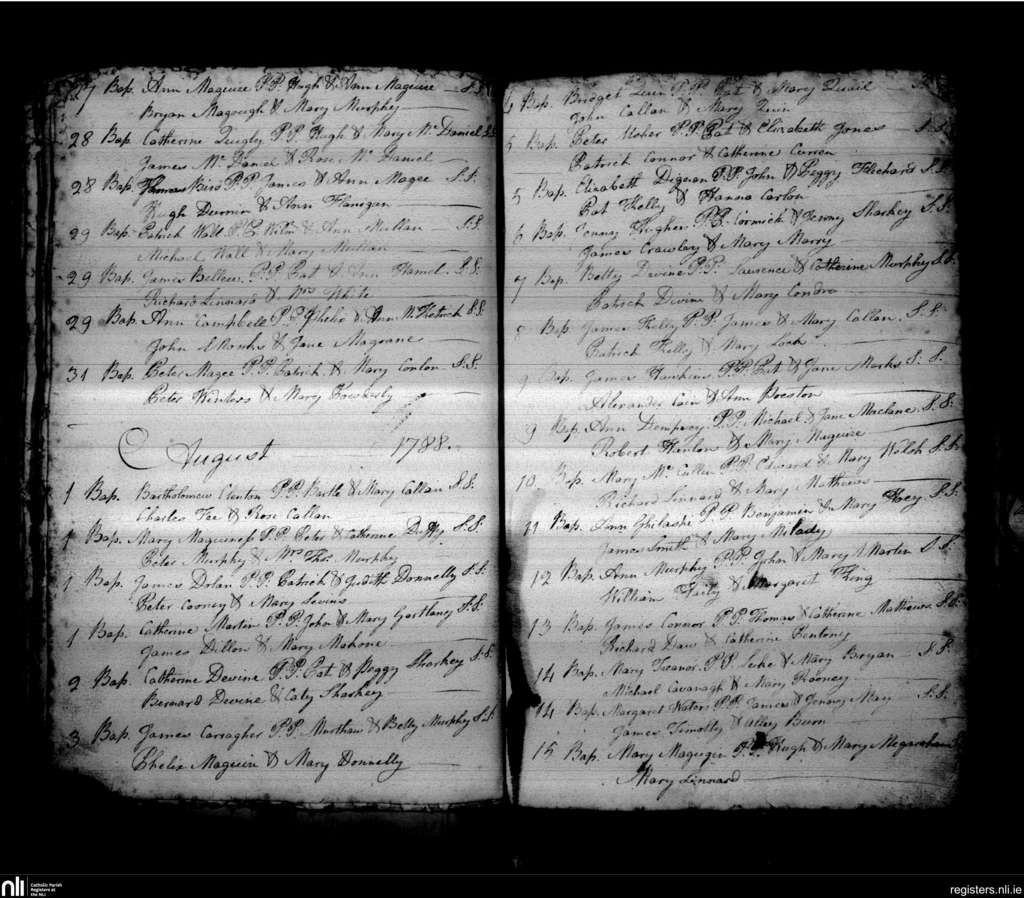 27 Bap. Ann Maguire P.P. Hugh & Ann Maguire S.S.
Bryan Magough & Mary Murphy
28 Bap. Catherine Quigly P.P. Hugh & Mary Mc. Daniel S.S.
James Mc. Daniel & Rose Mc. Daniel
28 Bap. P.P. James & Ann Magee S.S.
Hugh & Ann Flanigan
29 Bap. Patrick Wall P.P. & Ann Mullan S.S.
Michael Wall & Mary Mullan
29 Bap. James P.P. Pat & Ann Hamel S.S.
Richard Linnard & Mrs White
29 Bap. Ann Campbell P.P. Phelix & Ann S.S.
John & Jane Magrane
31 Bap. Peter Magee P.P. Patrick & Mary Conlon S.S.
Peter Winters & Mary
August 1788.
1 Bap. Bartholomew Clenton P.P. Bartle & Mary Callan S.S.
Charles Fee & Rose Callan
1 Bap. Mary P.P. Peter & Catherine Duffy S.S.
Peter Murphy & Mrs Thos. Murphy
1 Bap. James Dolan P.P. Patrick & Judith Donnelly S.S.
Peter Cooney & Mary Levins
1 Bap. Catherine Martin P.P. John & Mary Gartlany S.S.
James Dillon & Mary Mahone
2 Bap. Catherine Devine P.P. Pat & Peggy Sharkey S.S.
Bernard Devine & Caty Sharkey
3 Bap. James Carragher P.P. Murthaw & Betty Murphy S.S.
Phelix Maguire & Mary Donnelly
Bap. Bridget Quin P.P. Pat & Mary Quail
John Callan & Mary Quin
5 Bap. Peter Usher P.P. Pat & Elizabeth Jones S.S.
Patrick Connor & Catherine Curren
5 Bap. Elizabeth P.P. John & Peggy S.S.
Pat Kelly & Hanna Carlon
6 Bap. Jenny Hughes P.P. Cormick & Jenny Sharkey S.S.
James Crawley & Mary Marry
7 Bap. Betty Divine P.P. Laurence & Catherine Murphy S.S.
Patrick Divine & Mary Condra
8 Bap. James Kelly P.P. James & Mary Callan S.S.
Patrick Kelly & Mary Lock
9 Bap. James Hawkins P.P. Pat & Jane Marks S.S.
Alexander Cain & Ann Preston
9 Bap. Ann Dempsey P.P. Michael & Jane Maclane S.S.
Robert Hanlon & Mary Maguire
10 Bap. Mary Mc. Callen P.P. Edward & Mary Walsh S.S.
Richard Linnard & Mary Mathews
11 Bap. Ann P.P. Benjamen & Mary S.S.
James Smith & Mary Milady
12 Bap. Ann Murphy P.P. John & Mary Martin S.S.
William & Margaret King
13 Bap. James Connor P.P. Thomas & Catherine Mathews S.S.
Richard Daw & Catherine Bentony
14 Bap. Mary P.P. Luke & Mary Bryan S.S.
Michael Cavanagh & Mary Rooney
14 Bap. Margaret Waters P.P. James & Jenny May S.S.
James Timolty & Alley Burn
15 Bap. Mary P.P. Hugh & Mary
Mary Linnard
nli
Catholic Parish
Registers at
the NLI
registers.nli.ie